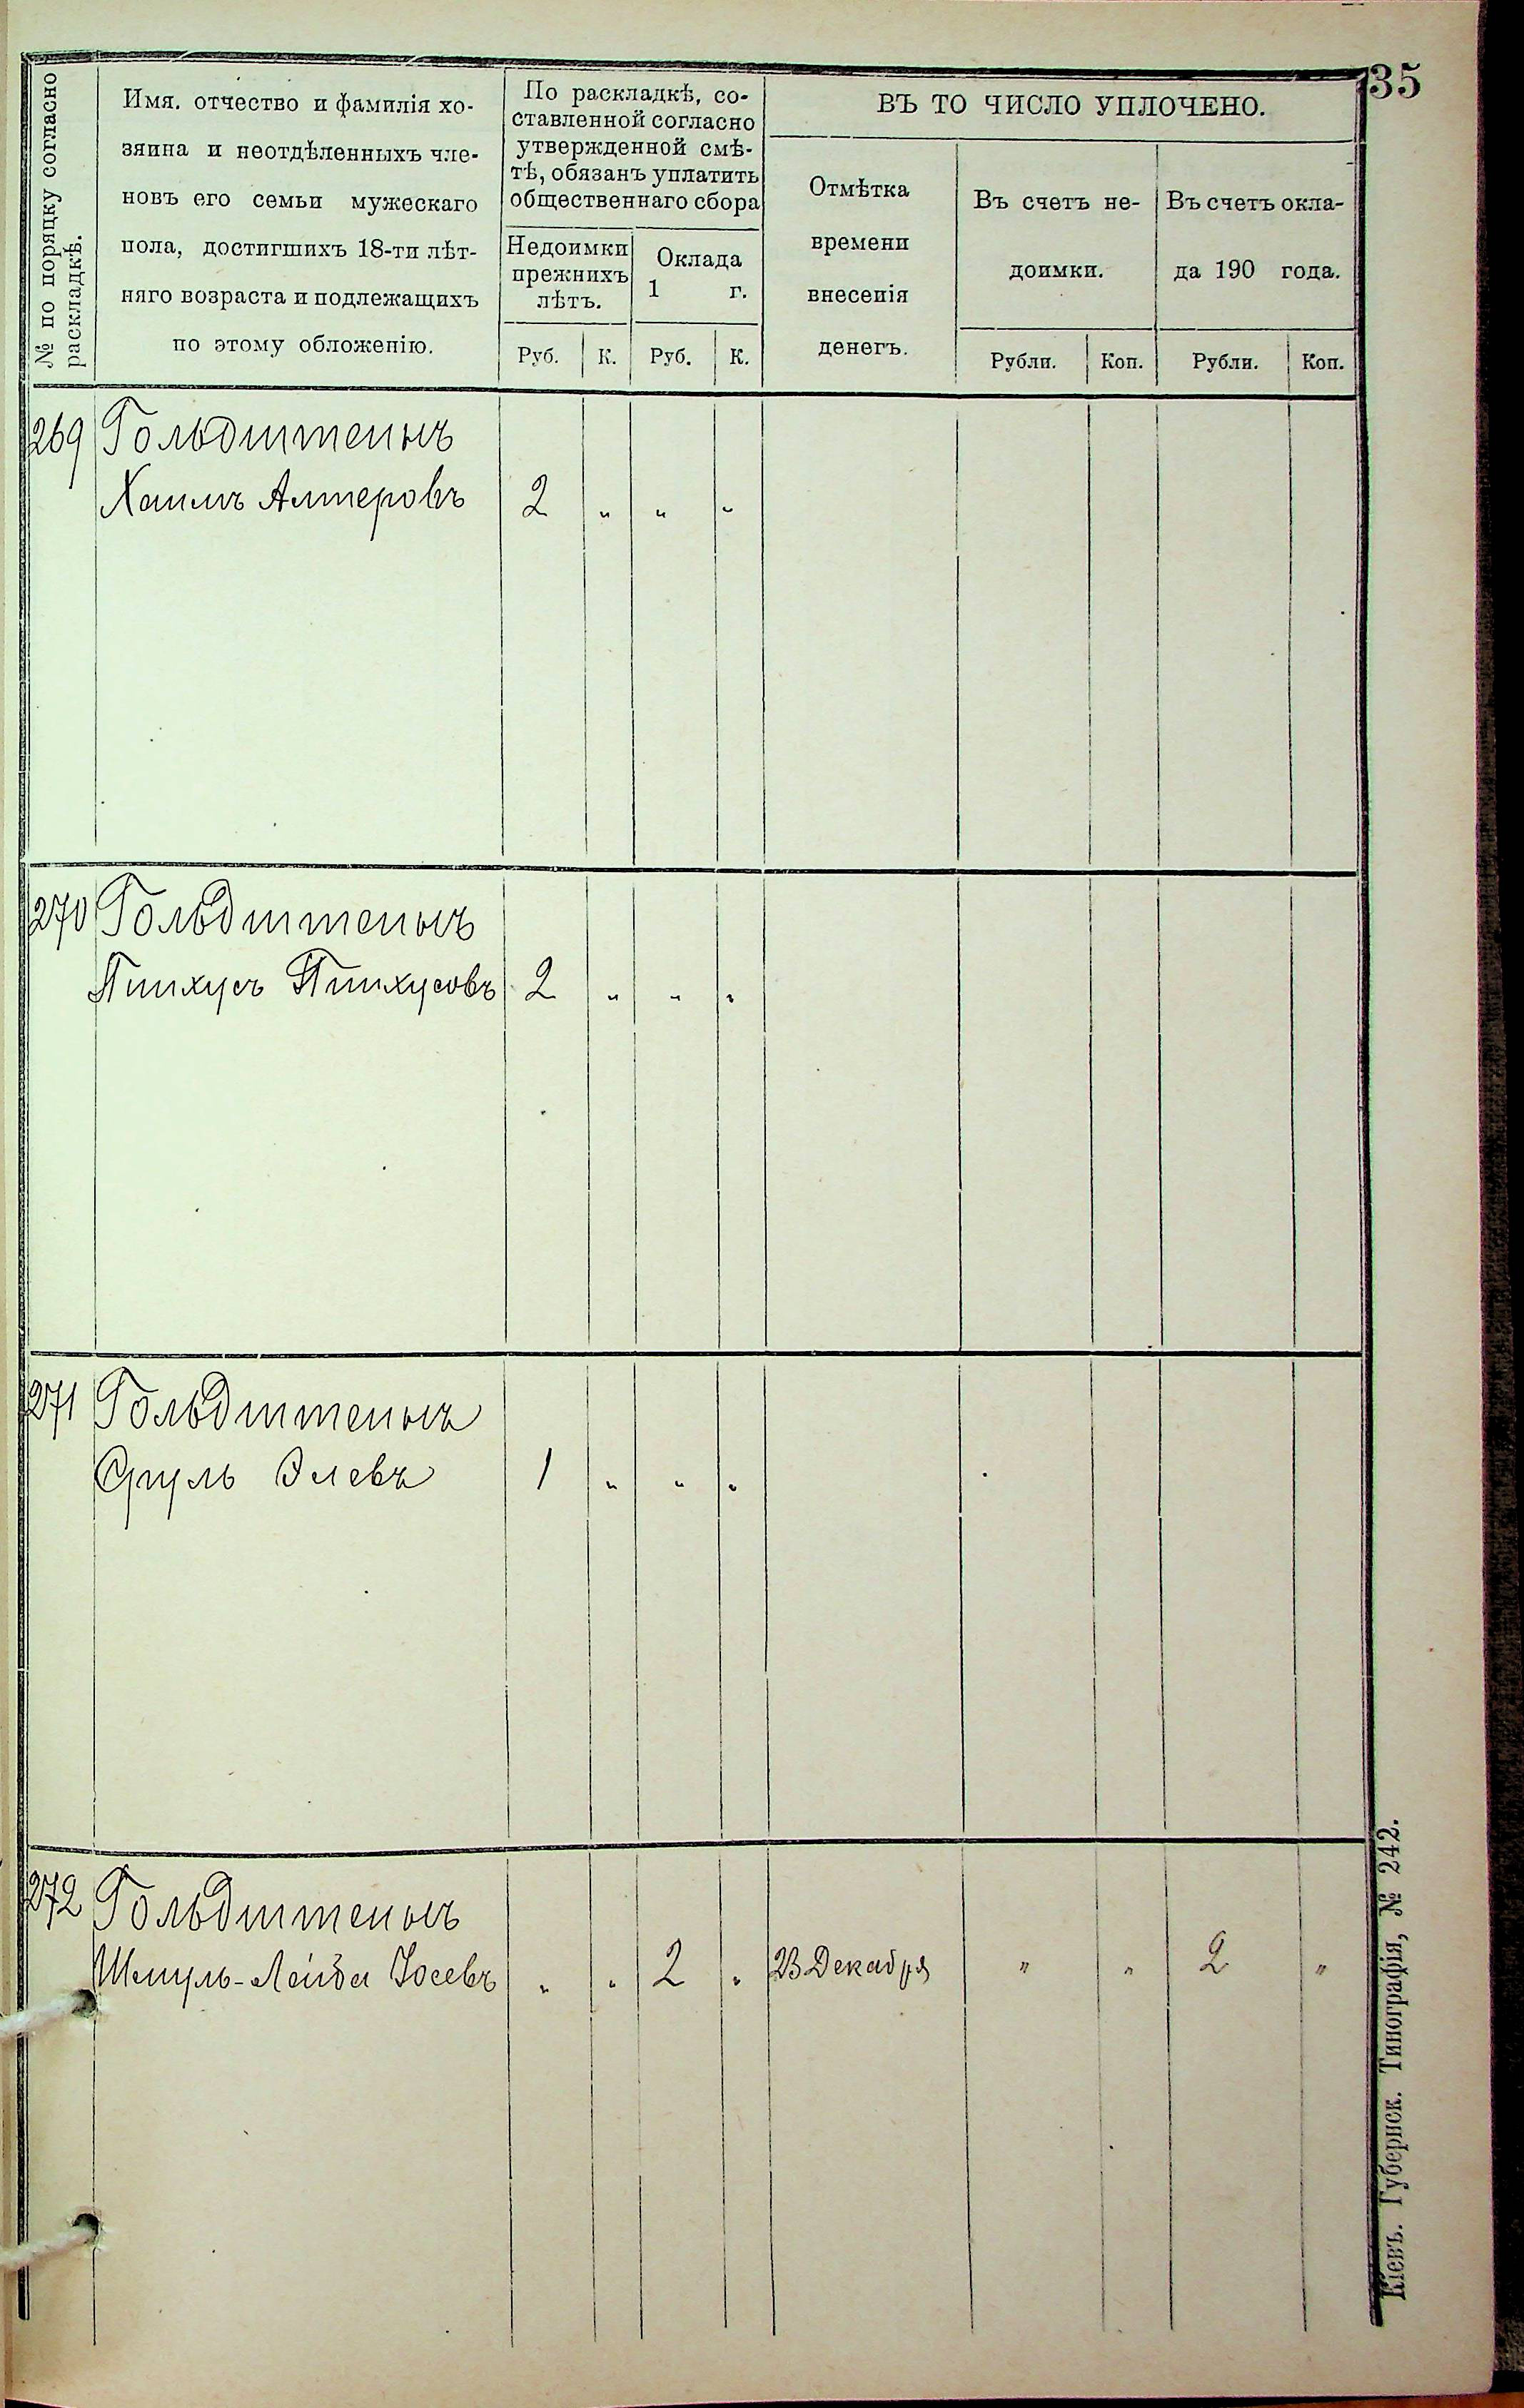 135
№ по порядку согласно
раскладкѣ.
Имя. отчество и фамилія хо-
зяина и неотдѣленныхъ чле-
новъ его семьи мужескаго
пола, достигшихъ 18-ти лѣт-
няго возраста и подлежащихъ
по этому обложенію.
По раскладкѣ, со-
ставленной согласно
утвержденной смѣ-
тѣ, обязанъ уплатить
общественнаго сбора
Недоимки
прежнихъ
лѣтъ.
Оклада
1 г.
Руб. К. Руб. К.
ВЪ ТО ЧИСЛО УПЛОЧЕНО.
Отмѣтка
времени
внесенія
денегъ.
Въ счетъ не-
доимки.
Въ счетъ окла-
да 190 года.
Рубли. Коп. Рубли. Коп.
269 Гольдштейнъ
Хаимъ Алтеровъ 2 " " "
270 Гольдштейнъ
Пинхусъ Пинхусовъ 2 " " "
271 Гольдштейнъ
Сруль Элевъ 1 " " "
272 Гольдштейнъ
Шмуль-Лейба Іосевъ " " 2 " 23 Декабря " " 2 "
Кіевъ. Губернск. Типографія, № 242.